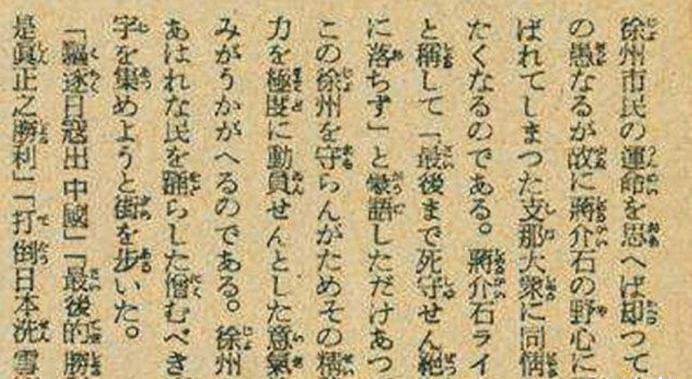 徐州市民の運命を思へば却つて
の愚なるが故に蔣介石の野心に
ばれてしまつた支那大衆に同情
たくなるのである。蔣介石ライ
と稱して「最後まで死守せん絕
に落ちず」と豪語しただけあつ
この徐州を守らんがためその精
力を極度に動員せんとした意氣
みがうかがへるのである。徐州
あはれな民を踊らした憎むべき
字を集めようと街を步いた。
「驅逐日寇出中國」「最後的勝
是眞正之勝利」「打倒日本洗雪